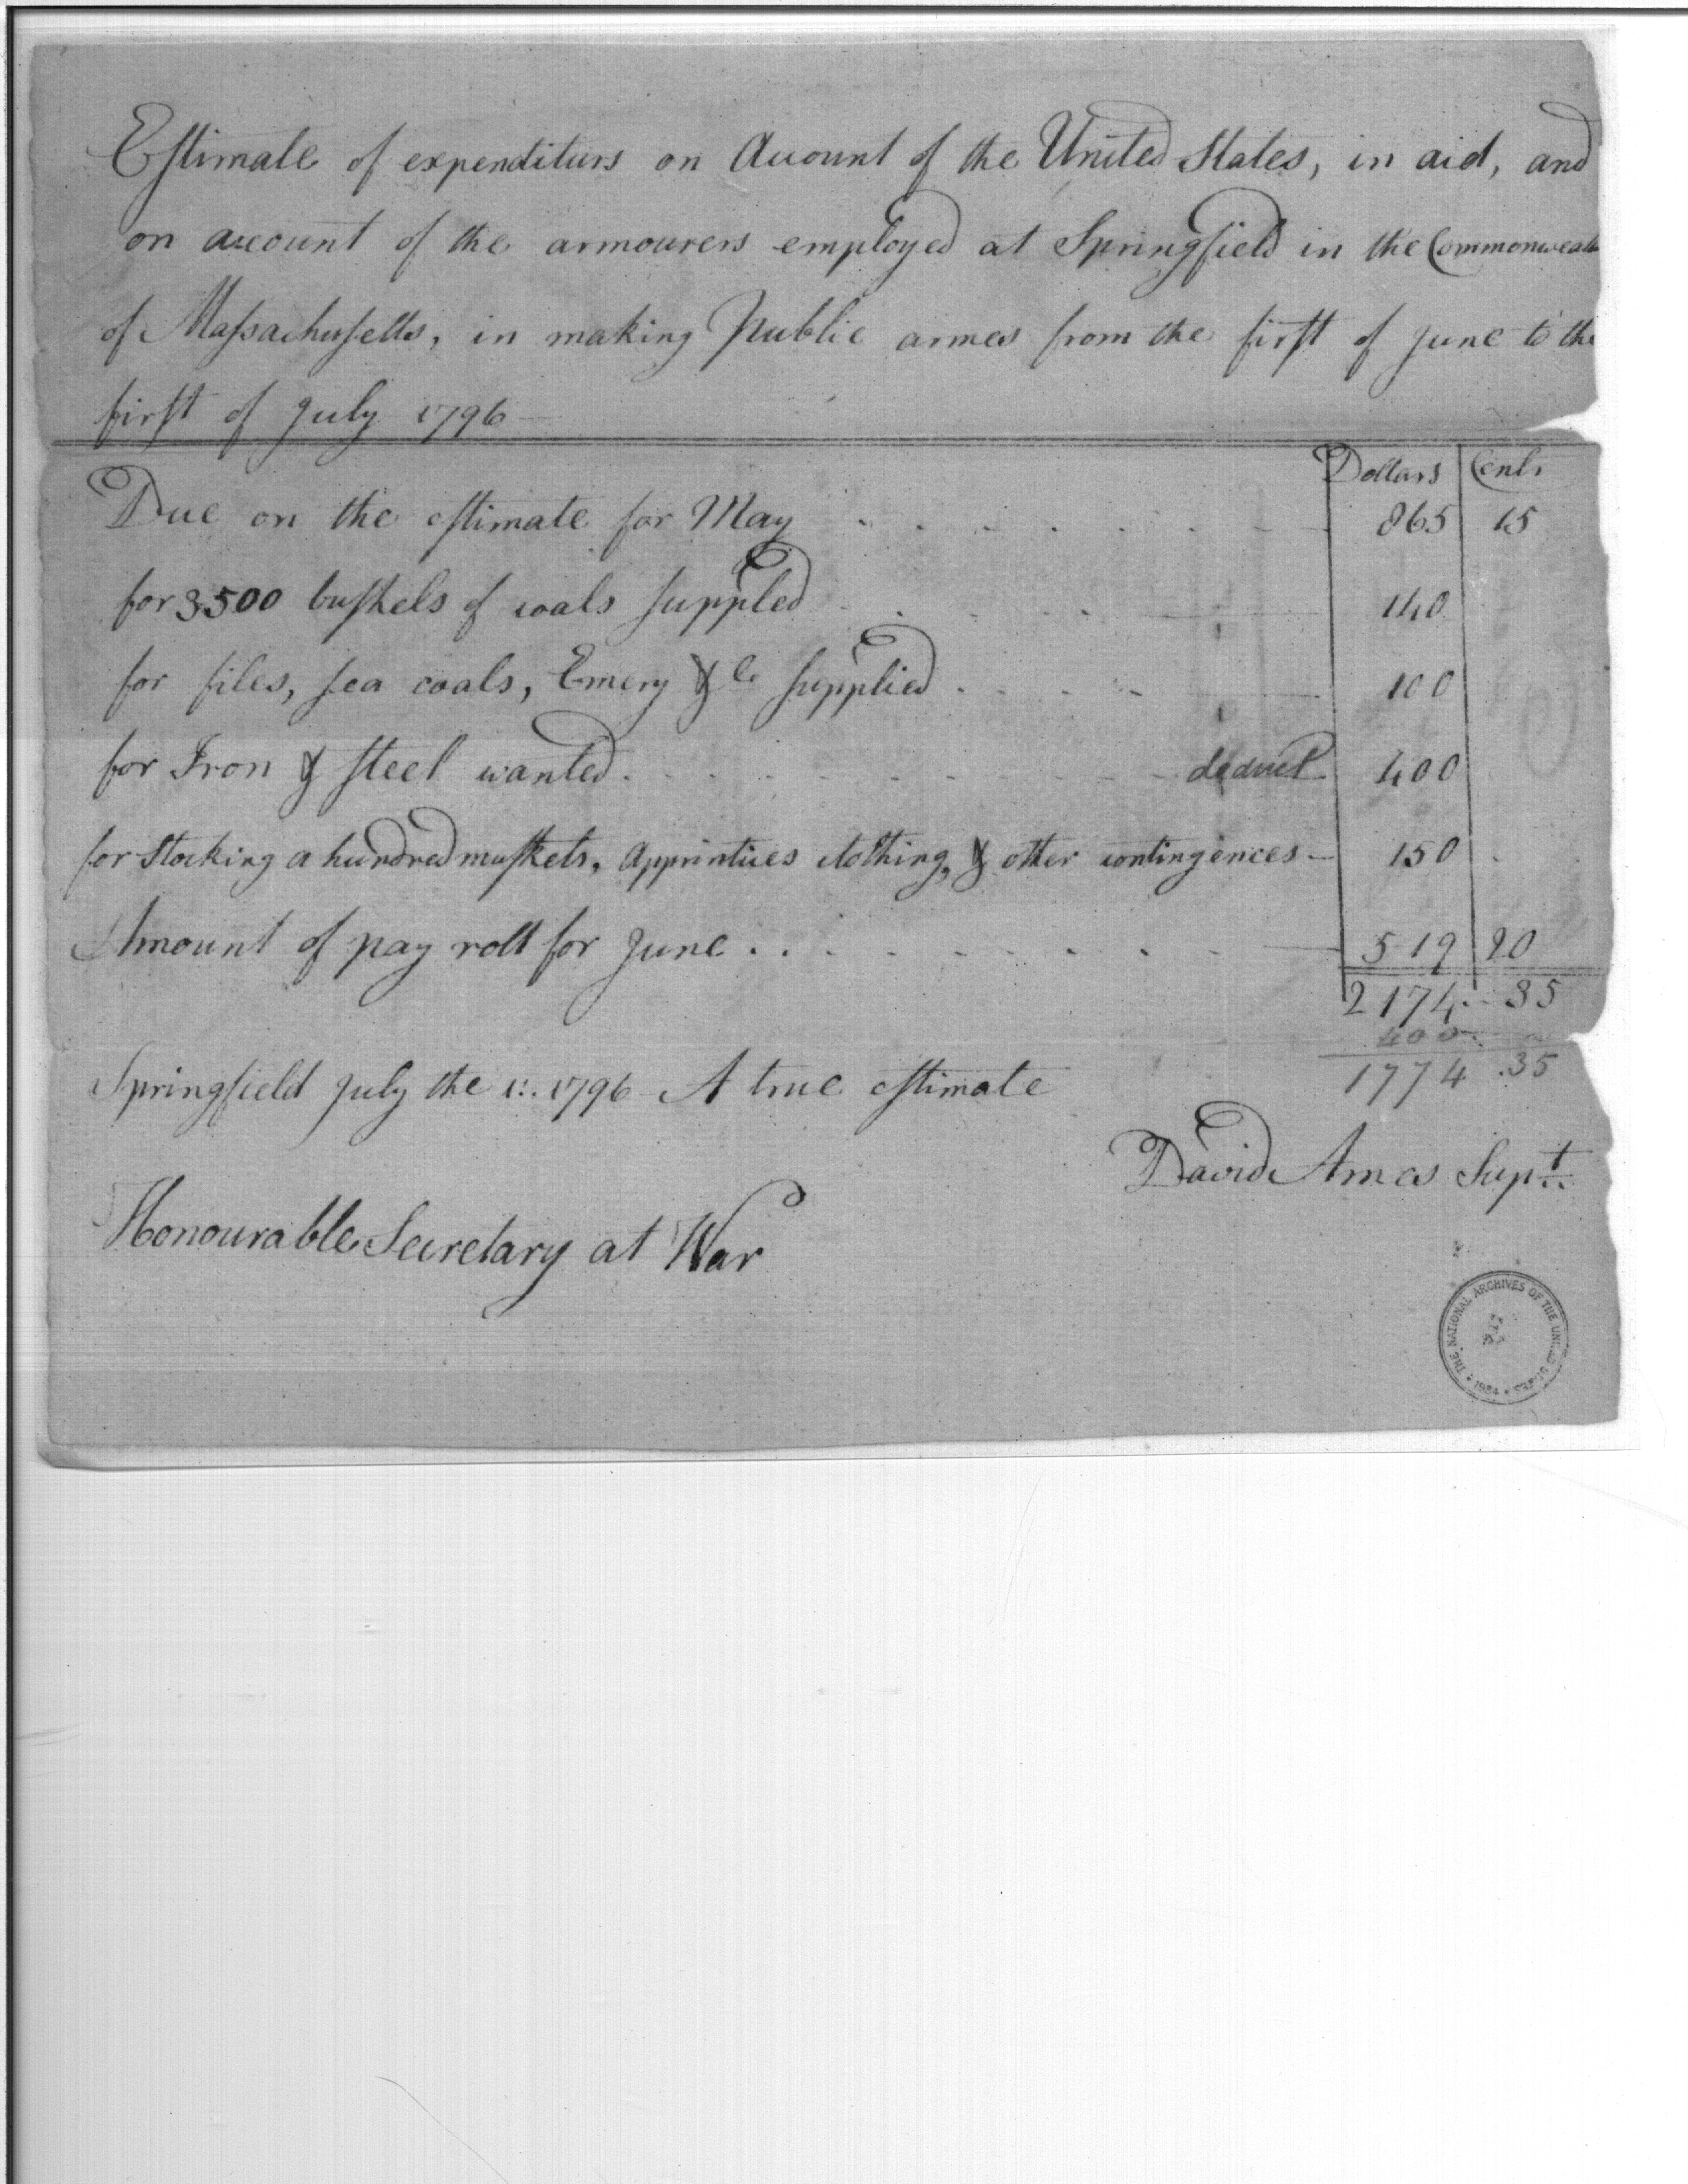 Estimate of expenditurs on Account of the United States, in aid, and
on account of the armourers employed at Springfield in the Commonwealth
of Massachusetts, in making Public armes from the first of June to the
first of July 1796
Dollars Cents
Due on the estimate for May 865 15
for 3500 bushels of coals suppled 140
for files, sea coals, Emery &c supplied 100
for Iron & steel wanted deduct 400
for Stocking a hundred muskets, Apprintices clothing, & other contingences 150
Amount of pay roll for June 519 20
2174 35
400
1774 .35
Springfield July the 1: 1796 A true estimate
David Ames Supt
Honourable Secretary at War
THE NATIONAL ARCHIVES OF THE UNITED STATES
1934